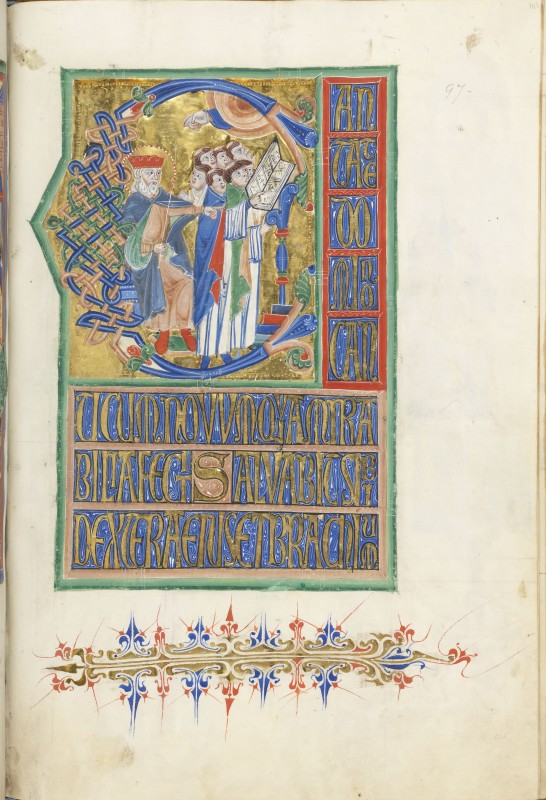 97-
CAN
TATE
DO
MINO
CAN
TICUM NOVUM QA MIRA
BILIA FECIT SALVABIT SIBI
DEXTERA EIUS ET BRACHIUM